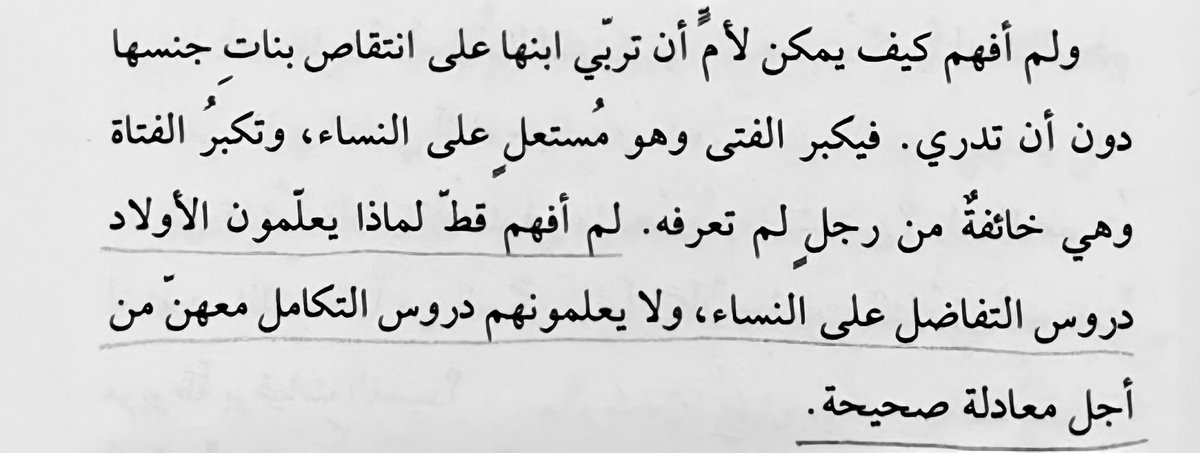 ولم أفهم كيف يمكن لأمٍّ أن تربّي ابنها على انتقاص بناتِ جنسها
دون أن تدري. فيكبر الفتى وهو مُستعلٍ على النساء، وتكبرُ الفتاة
وهي خائفةٌ من رجلٍ لم تعرفه. لم أفهم قطّ لماذا يعلّمون الأولاد
دروس التفاضل على النساء، ولا يعلمونهم دروس التكامل معهنّ من
أجل معادلة صحيحة.